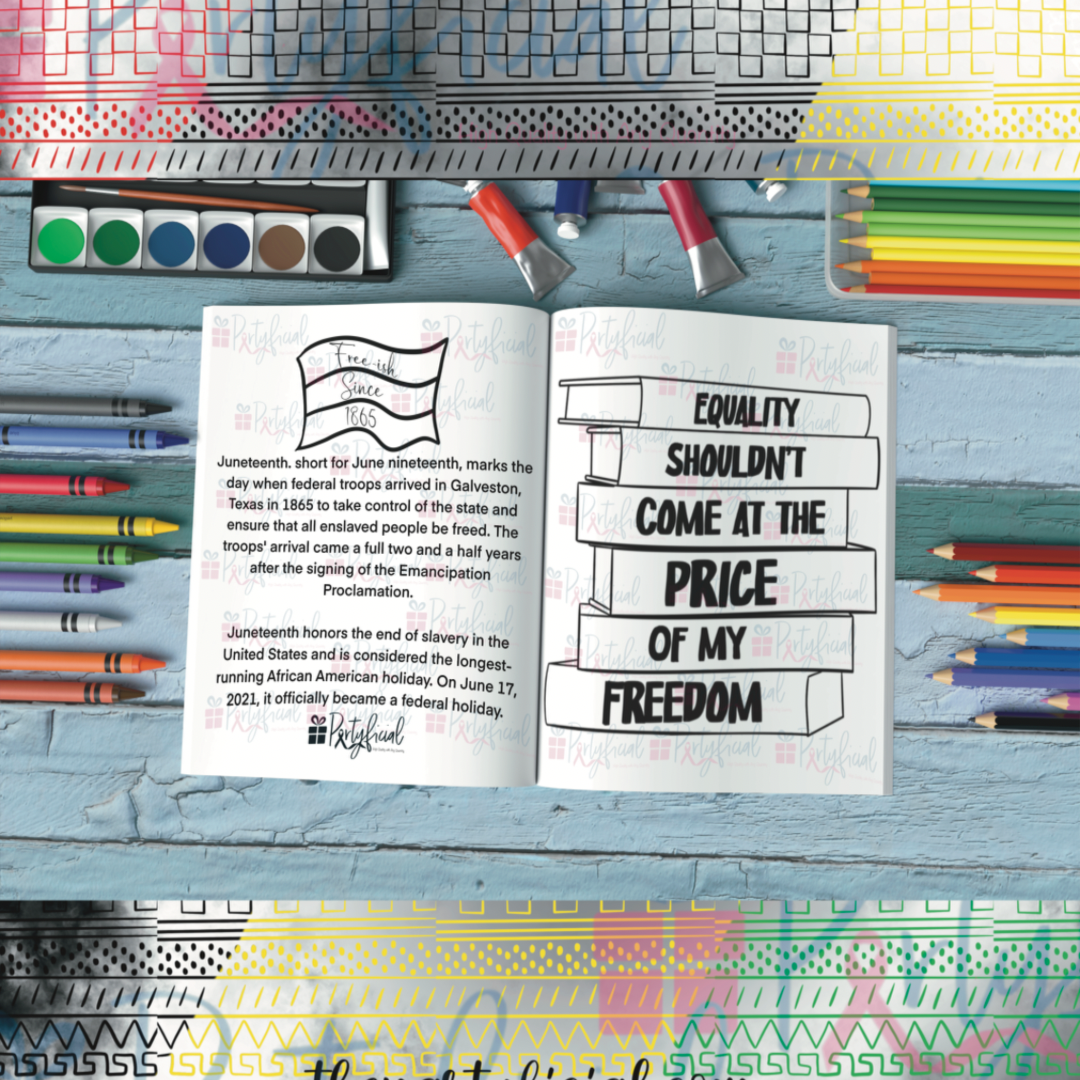 Partyficial
Free-ish
Since
1865
Juneteenth. short for June nineteenth, marks the
day when federal troops arrived in Galveston,
Texas in 1865 to take control of the state and
ensure that all enslaved people be freed. The
troops' arrival came a full two and a half years
after the signing of the Emancipation
Proclamation.
Juneteenth honors the end of slavery in the
United States and is considered the longest-
running African American holiday. On June 17,
2021, it officially became a federal holiday.
Partyficial
EQUALITY
SHOULDN'T
COME AT THE
PRICE
OF MY
FREEDOM